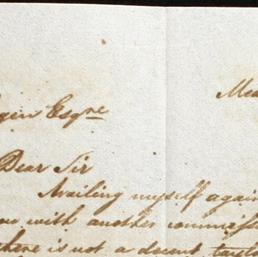 Esqre
Dear Sir
Availing myself again
with another commiss
there is not a decent